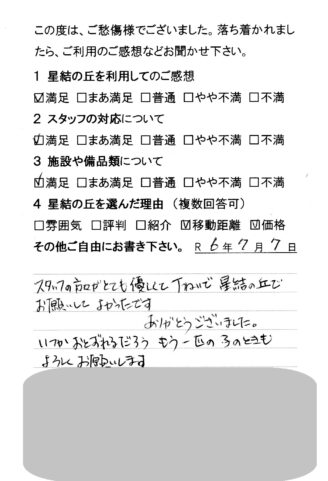 この度は、ご愁傷様でございました。落ち着かれまし
たら、ご利用のご感想などお聞かせ下さい。
1 星結の丘を利用してのご感想
☑満足 □まあ満足 □普通 □やや不満 □不満
2 スタッフの対応について
☑満足 □まあ満足 □普通 □やや不満 □不満
3 施設や備品類について
☑満足 □まあ満足 □普通 □やや不満 □不満
4 星結の丘を選んだ理由 （複数回答可）
□雰囲気 □評判 □紹介 ☑移動距離 ☑価格
その他ご自由にお書き下さい。 R 6年7月7日
スタッフの方々がとても優しくて丁ねいで 星結の丘で
お願いして よかったです
ありがとうございました。
いつかおとずれるだろう もう一匹の子のときも
よろしくお願いします